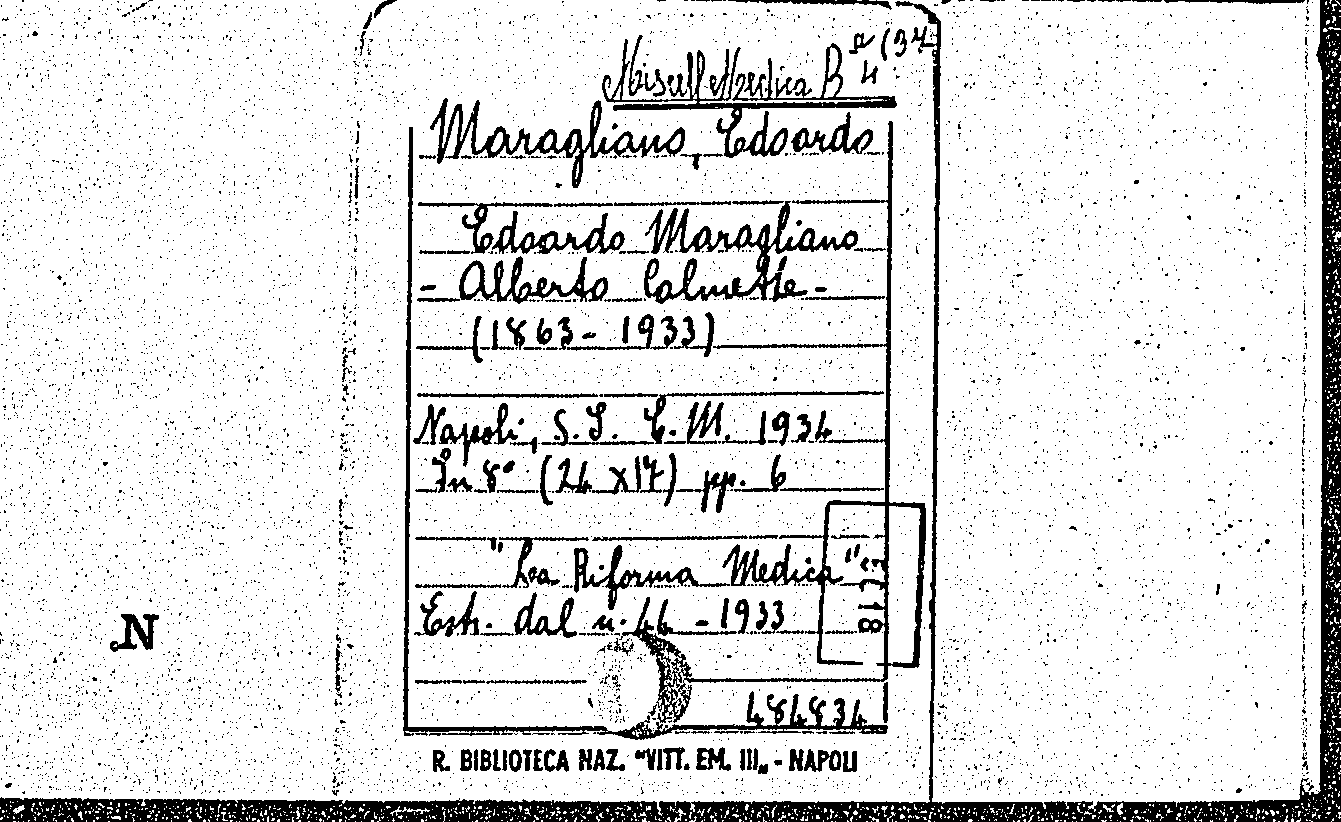 Miscell Medica B 4 (34
Maragliano, Edoardo
Edoardo Maragliano
- Alberto Calmette -
(1863 - 1933)
Napoli, S. I. E. M. 1934
In 8° (24 X 17) pp. 6
"La Riforma Medica"
Estr. dal n. 44 - 1933
484834
R. BIBLIOTECA NAZ. "VITT. EM. III„ - NAPOLI
N